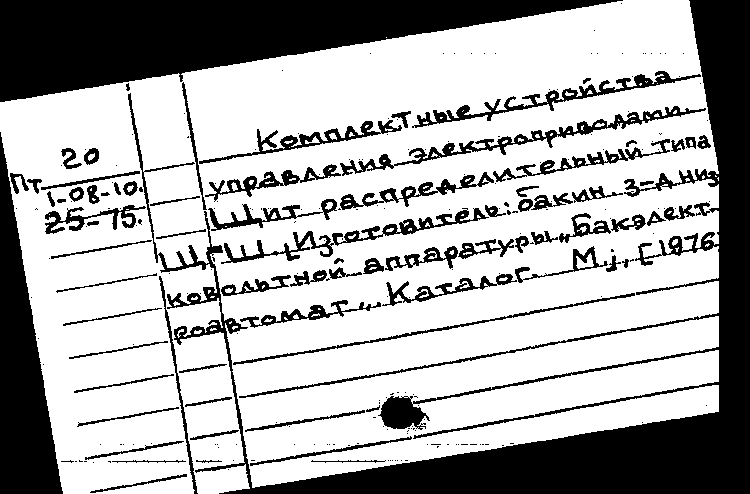 20
Пт 1-08-10.
25-75.
Комплектные устройства
управления электроприводами.
Щит распределительный типа
ЩГШ. [Изготовитель: бакин. з-д низ
ковольтной аппаратуры „Бакэлект-
роавтомат„. Каталог. М.;, [1976